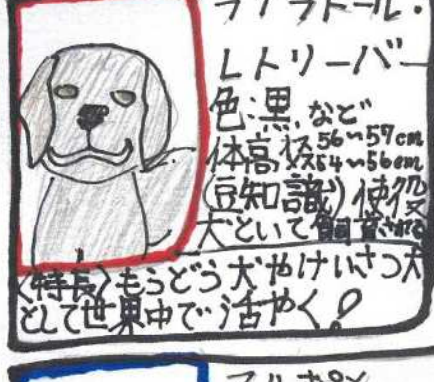 ラブラドール・
レトリーバー
色:黒など
体高 ♂56〜57cm
♀54〜56cm
(豆知識)使役
犬といて飼育される
〈特長〉もうどう犬やけいさつ犬
として世界中で活やく!